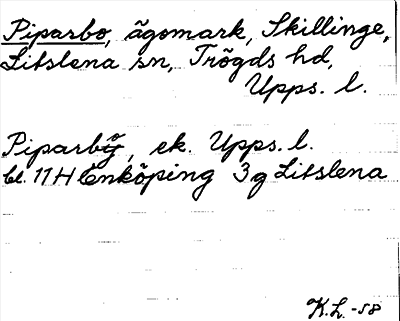 Piparbo, ägomark, Skillinge,
Litslena sn, Trögds hd,
Upps. l.
Piparbo, ek. Upps. l.
bl. 11 H Enköping 3g Litslena
K.L. -58